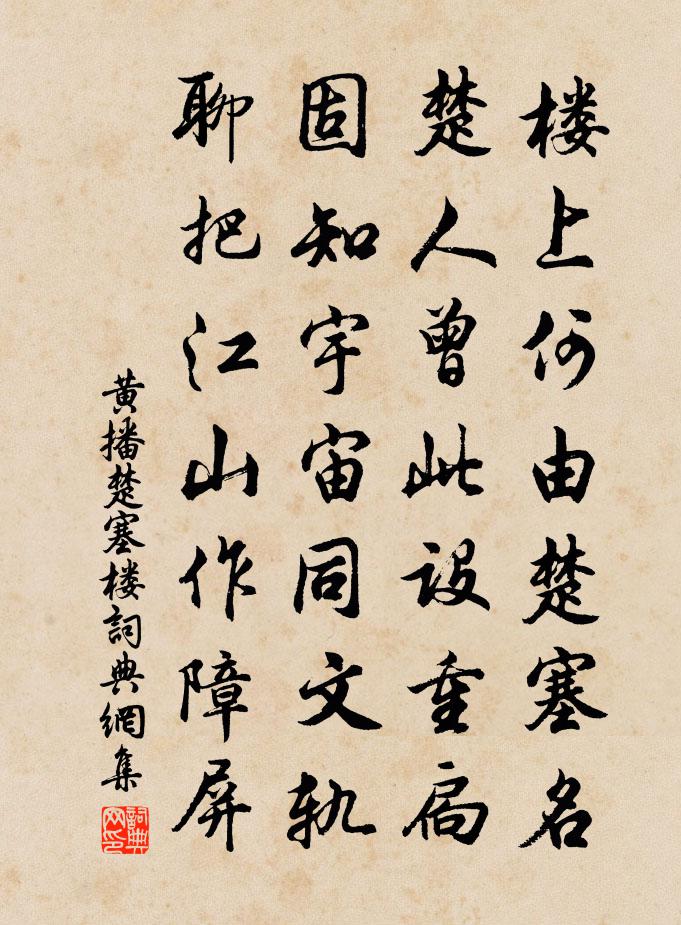 楼上何由楚塞名
楚人曾此设重扃
固知宇宙同文轨
聊把江山作障屏
黄播楚塞楼詞典網集
詞典网印